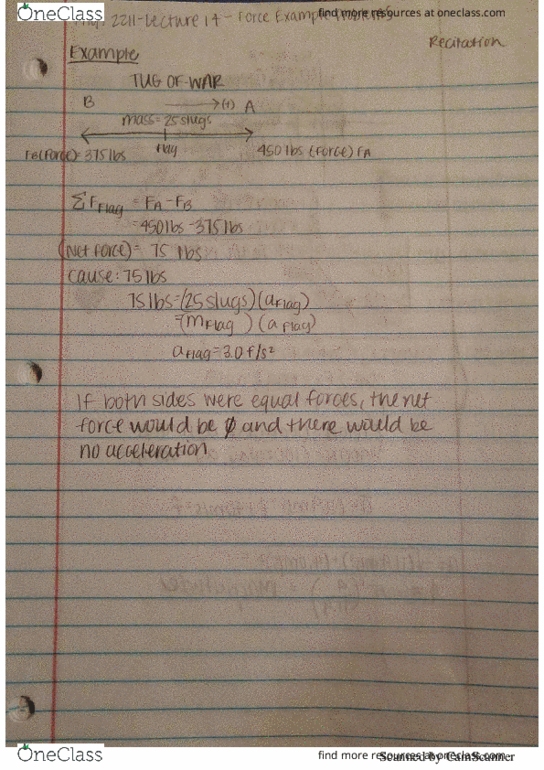 OneClass
find more resources at oneclass.com
2211-Lecture 14 - Force Example Problems
Recitation
Example
TUG OF WAR
B →(+) A
mass = 25 slugs
FB(Force)= 375 lbs Flag 450 lbs (Force) FA
ΣFFlag = FA - FB
= 450 lbs - 375 lbs
(Net force) = 75 lbs
cause: 75 lbs
75 lbs = (25 slugs)(aFlag)
=(mFlag )(aFlag)
aFlag = 3.0 f/s²
If both sides were equal forces, the net
force would be ∅ and there would be
no acceleration
OneClass
find more resources at oneclass.com
Scanned by CamScanner